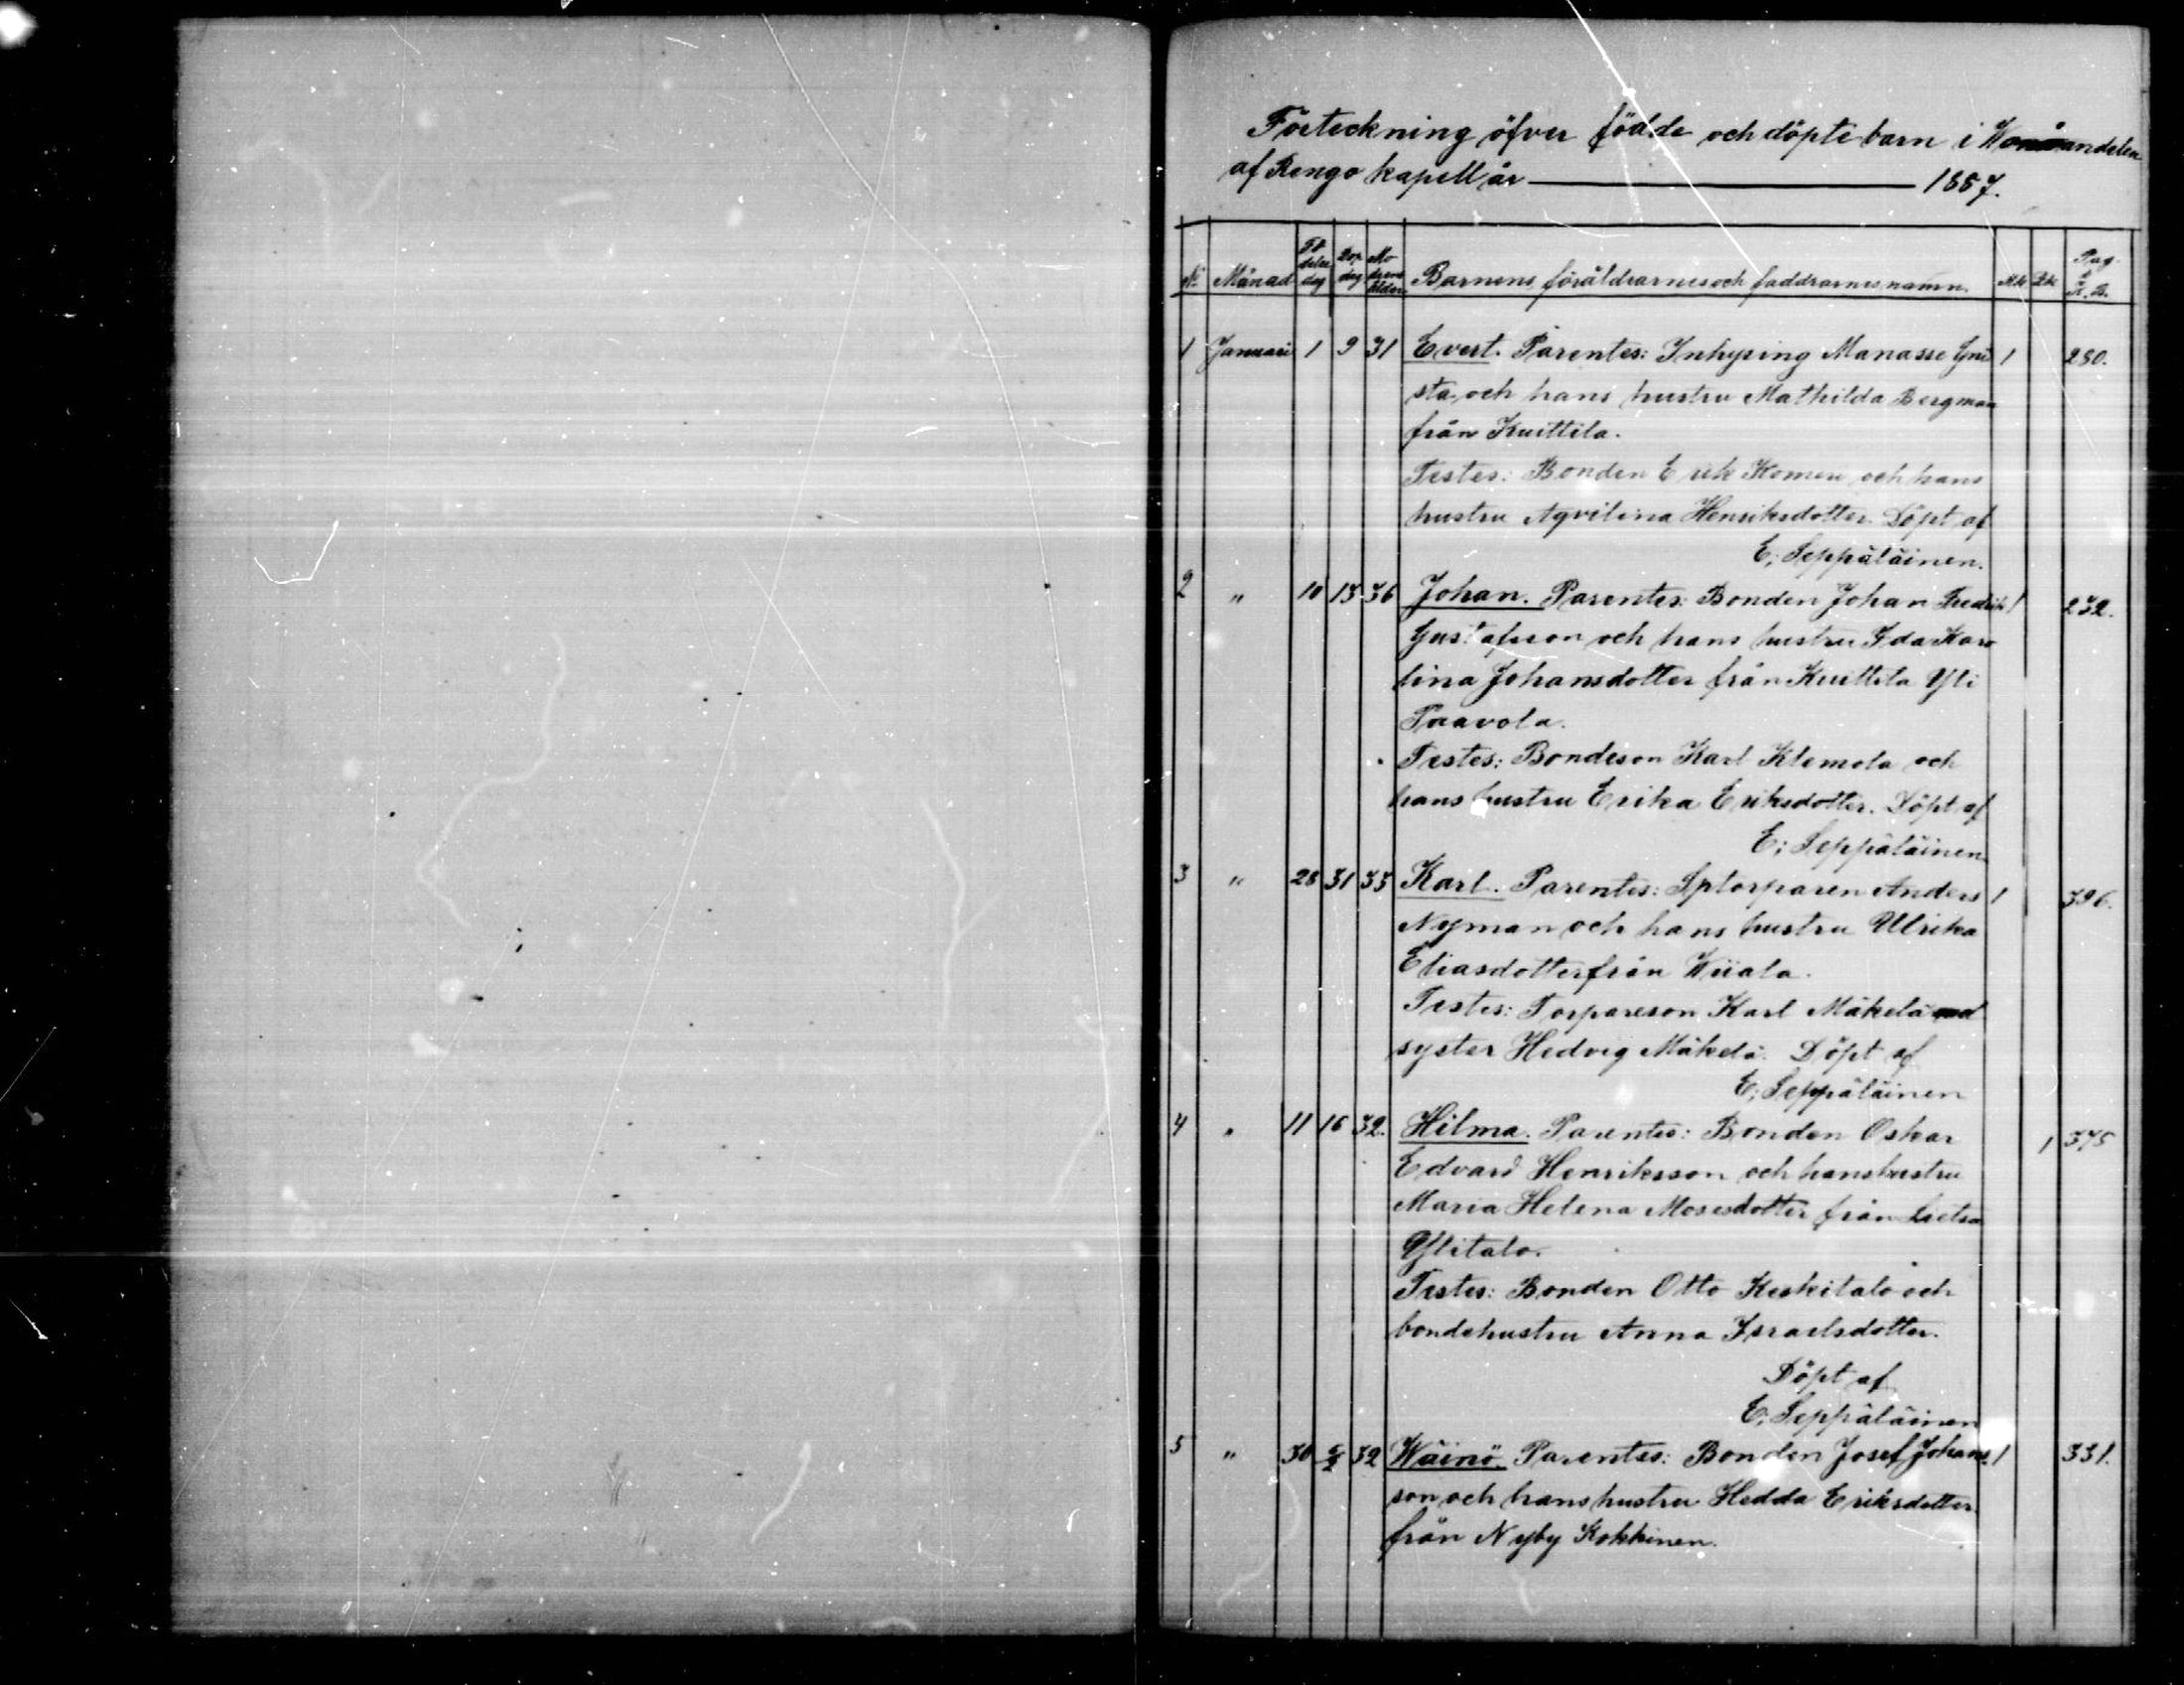 Förteckning öfver födde och döpte barn i Wanåandelen
af Rengo kapell år 1887.
No Månad Fö delse dag Dop dag Mo drens ålder Barnens, föräldrarnes och faddrarnes namn. Mk Qk Pag. i K. B.
1 Januari 1 9 31 Evert. Parentes: Inhysing Manasse Gni 1 280.
sta och hans hustru Mathilda Bergman
från Kuittila.
Testes: Bonden Erik Komeri och hans
hustru Aqvilina Henriksdotter. Döpt af
E; Seppäläinen.
2 " 10 13 36 Johan. Parentes: Bonden Johan Fredrik 1 232.
Gustafsson och hans hustru Ida Karo
lina Johansdotter från Kuittila Yli
Paavola.
Testes: Bondeson Karl Klemola och
hans hustru Erika Eriksdotter. Döpt af
E; Seppäläinen
3 " 28 31 33 Karl. Parentes: Sptorparen Anders 1 396.
Nyman och hans hustru Ulrika
Eliasdotter från Wiiala.
Testes: Torpareson Karl Mäkelä med
syster Hedvig Mäkelä. Döpt af
E; Seppäläinen
4 " 11 16 32. Hilma. Parentes: Bonden Oskar 1 375
Edvard Henriksson och hans hustru
Maria Helena Mosesdotter från Lietsa
Ylitalo.
Testes: Bonden Otto Keskitalo och
bondehustru Anna Israelsdotter.
Döpt af
E; Seppäläinen
5 " 30 32 Wäinö. Parentes: Bonden Josef Johans 1 331.
son och hans hustru Hedda Eriksdotter
från Nyby Kokkinen.